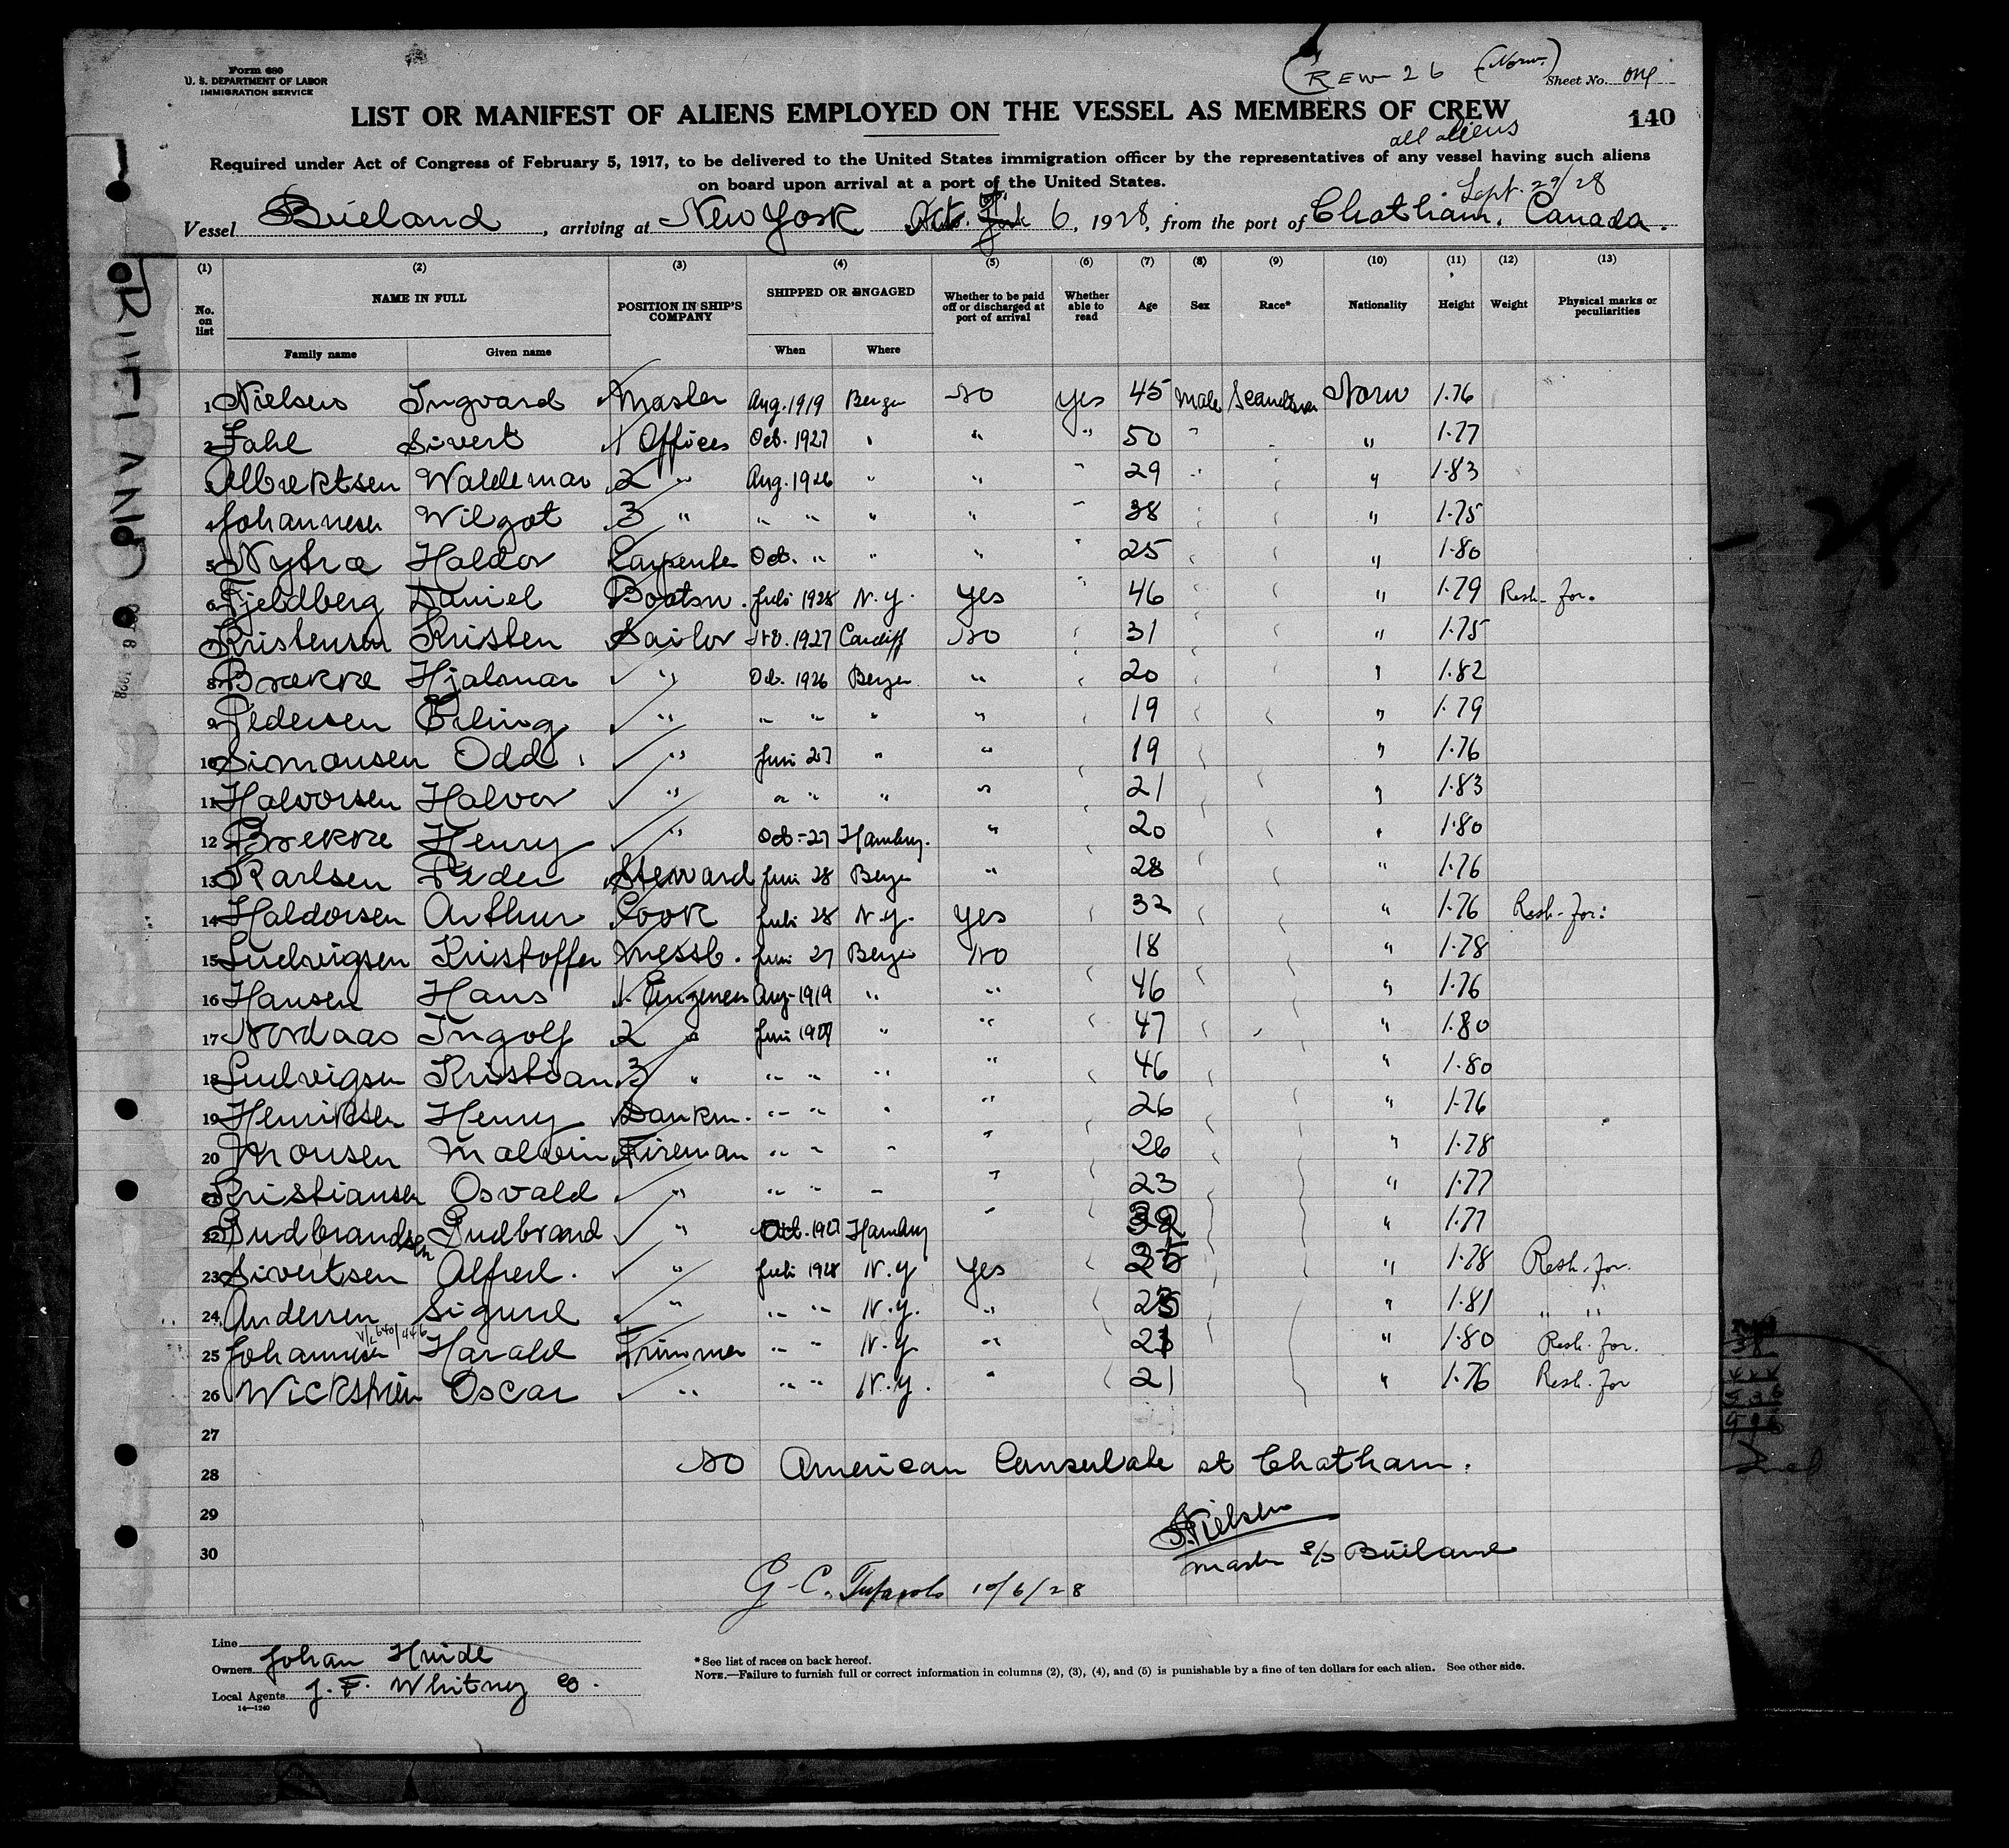 Form 680
U. S. DEPARTMENT OF LABOR
IMMIGRATION SERVICE
CREW 26 (Norw.) Sheet No. one
LIST OR MANIFEST OF ALIENS EMPLOYED ON THE VESSEL AS MEMBERS OF CREW
140
all aliens
Required under Act of Congress of February 5, 1917, to be delivered to the United States immigration officer by the representatives of any vessel having such aliens
on board upon arrival at a port of the United States.
Sept. 29/28
Vessel Büeland, arriving at New York Octo. 6, 1928, from the port of Chatham, Canada.
(1) (2) (3) (4) (5) (6) (7) (8) (9) (10) (11) (12) (13)
No. on list NAME IN FULL POSITION IN SHIP'S COMPANY SHIPPED OR ENGAGED Whether to be paid off or discharged at port of arrival Whether able to read Age Sex Race* Nationality Height Weight Physical marks or peculiarities
Family name Given name When Where
1 Nielsen Ingvard Master Aug. 1919 Bergen No Yes 45 Male Scandinav Norw 1.76
2 Fahl Sivert 1 Officer Oct. 1927 " " " 50 " " " 1.77
3 Albrektsen Waldemar 2 " Aug. 1926 " " " 29 " " " 1.83
4 Johannesen Wilgot 3 " " " " " " 38 " " " 1.75
5 Nytræ Haldor Carpenter Oct. " " " " 25 " " " 1.80
6 Fjeldberg Daniel Boatsn. Juli 1928 N.Y. Yes " 46 " " " 1.79 Resh. for.
7 Kristensen Kristen Sailor No. 1927 Cardiff No " 31 " " " 1.75
8 Brække Hjalmar " Oct. 1926 Bergen " " 20 " " " 1.82
9 Pedersen Erling " " " " " " 19 " " " 1.79
10 Simonsen Odd " Juni 27 " " " 19 " " " 1.76
11 Halvorsen Halvor " " " " " " 21 " " " 1.83
12 Brekke Henry " Oct-27 Hamburg. " " 20 " " " 1.80
13 Karlsen Peder Steward Juni 28 Bergen " " 28 " " " 1.76
14 Haldorsen Arthur Cook Juli 28 N.Y. Yes " 32 " " " 1.76 Resh. for.
15 Ludvigsen Kristoffer Messb. Juni 27 Bergen No " 18 " " " 1.78
16 Hansen Hans 1. Engeneer Aug-1919 " " " 46 " " " 1.76
17 Nordaas Ingolf 2 " Juni 1927 " " " 47 " " " 1.80
18 Ludvigsen Kristian 3 " " " " " " 46 " " " 1.80
19 Henriksen Henry Dankm. " " " " " 26 " " " 1.76
20 Monsen Malvin Fireman " " " " " 26 " " " 1.78
21 Kristiansen Osvald " " " " " " 23 " " " 1.77
22 Gudbrandsen Gudbrand " Oct. 1927 Hamburg " " 32 " " " 1.77
23 Sivertsen Alfred. " Juli 1928 N.Y Yes " " " " 1.78 Resh. for.
24 Andersen Sigurd " " " N.Y. " " " " " 1.81 " "
25 Johannesen Harald Trimmer " " N.Y. " " " " " 1.80 Resh. for.
26 Wickstrøm Oscar " " " N.Y. " " 21 " " " 1.76 Resh. for
27
28 No American Consulate at Chatham.
29
I Nielsen
30
Master s/s Büiland
G. C. 10/6/28
Line
Owners Johan
Local Agents J. F. Whitney Co.
14—1240
* See list of races on back hereof.
NOTE.—Failure to furnish full or correct information in columns (2), (3), (4), and (5) is punishable by a fine of ten dollars for each alien. See other side.